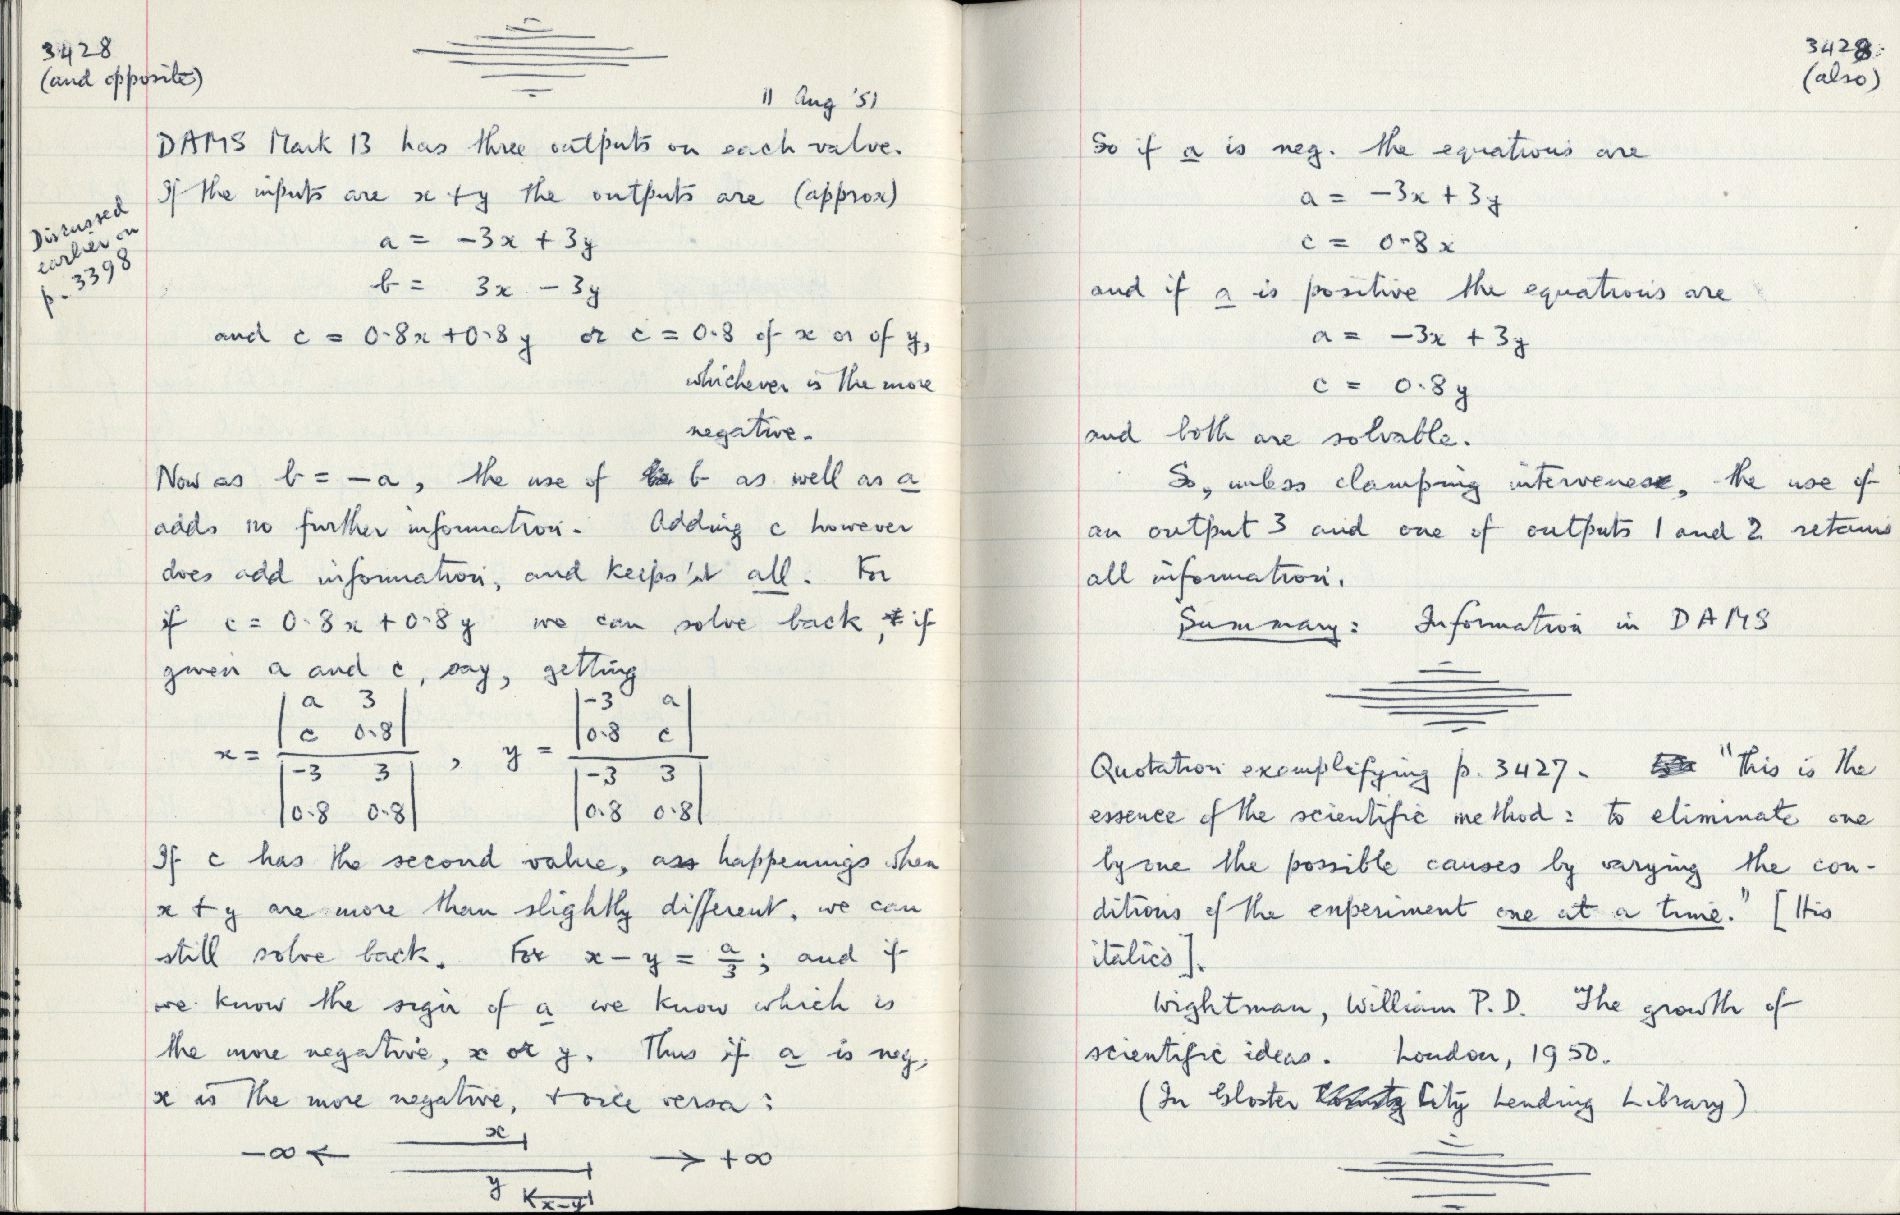 3428
(and opposite)
11 Aug '51
DAMS Mark 13 has three outputs on each valve.
If the inputs are x + y the outputs are (approx)
Discussed
earlier on
p. 3398
a = -3x + 3y
b = 3x - 3y
and c = 0.8x + 0.8y or c = 0.8 of x or of y,
whichever is the more
negative.
Now as b = -a, the use of b as well as a
adds no further information. Adding c however
does add information, and keeps it all. For
if c = 0.8x + 0.8y we can solve back, if
given a and c, say, getting
x = |a 3; c 0.8| / |-3 3; 0.8 0.8| , y = |-3 a; 0.8 c| / |-3 3; 0.8 0.8|
If c has the second value, as happenings when
x + y are more than slightly different, we can
still solve back. For x - y = a/3; and if
we know the sign of a we know which is
the more negative, x or y. Thus if a is neg,
x is the more negative, + vice versa:
-∞ ← x → +∞
y
x-y
3428
(also)
So if a is neg. the equations are
a = -3x + 3y
c = 0.8x
and if a is positive the equations are
a = -3x + 3y
c = 0.8y
and both are solvable.
So, unless clamping intervenes, the use of
an output 3 and one of outputs 1 and 2 retains
all information.
Summary: Information in DAMS
Quotation exemplifying p. 3427. "This is the
essence of the scientific method: to eliminate one
by one the possible causes by varying the con-
ditions of the experiment one at a time." [His
italics].
Wightman, William P.D. "The growth of
scientific ideas. London, 1950.
(In Gloster City Lending Library)